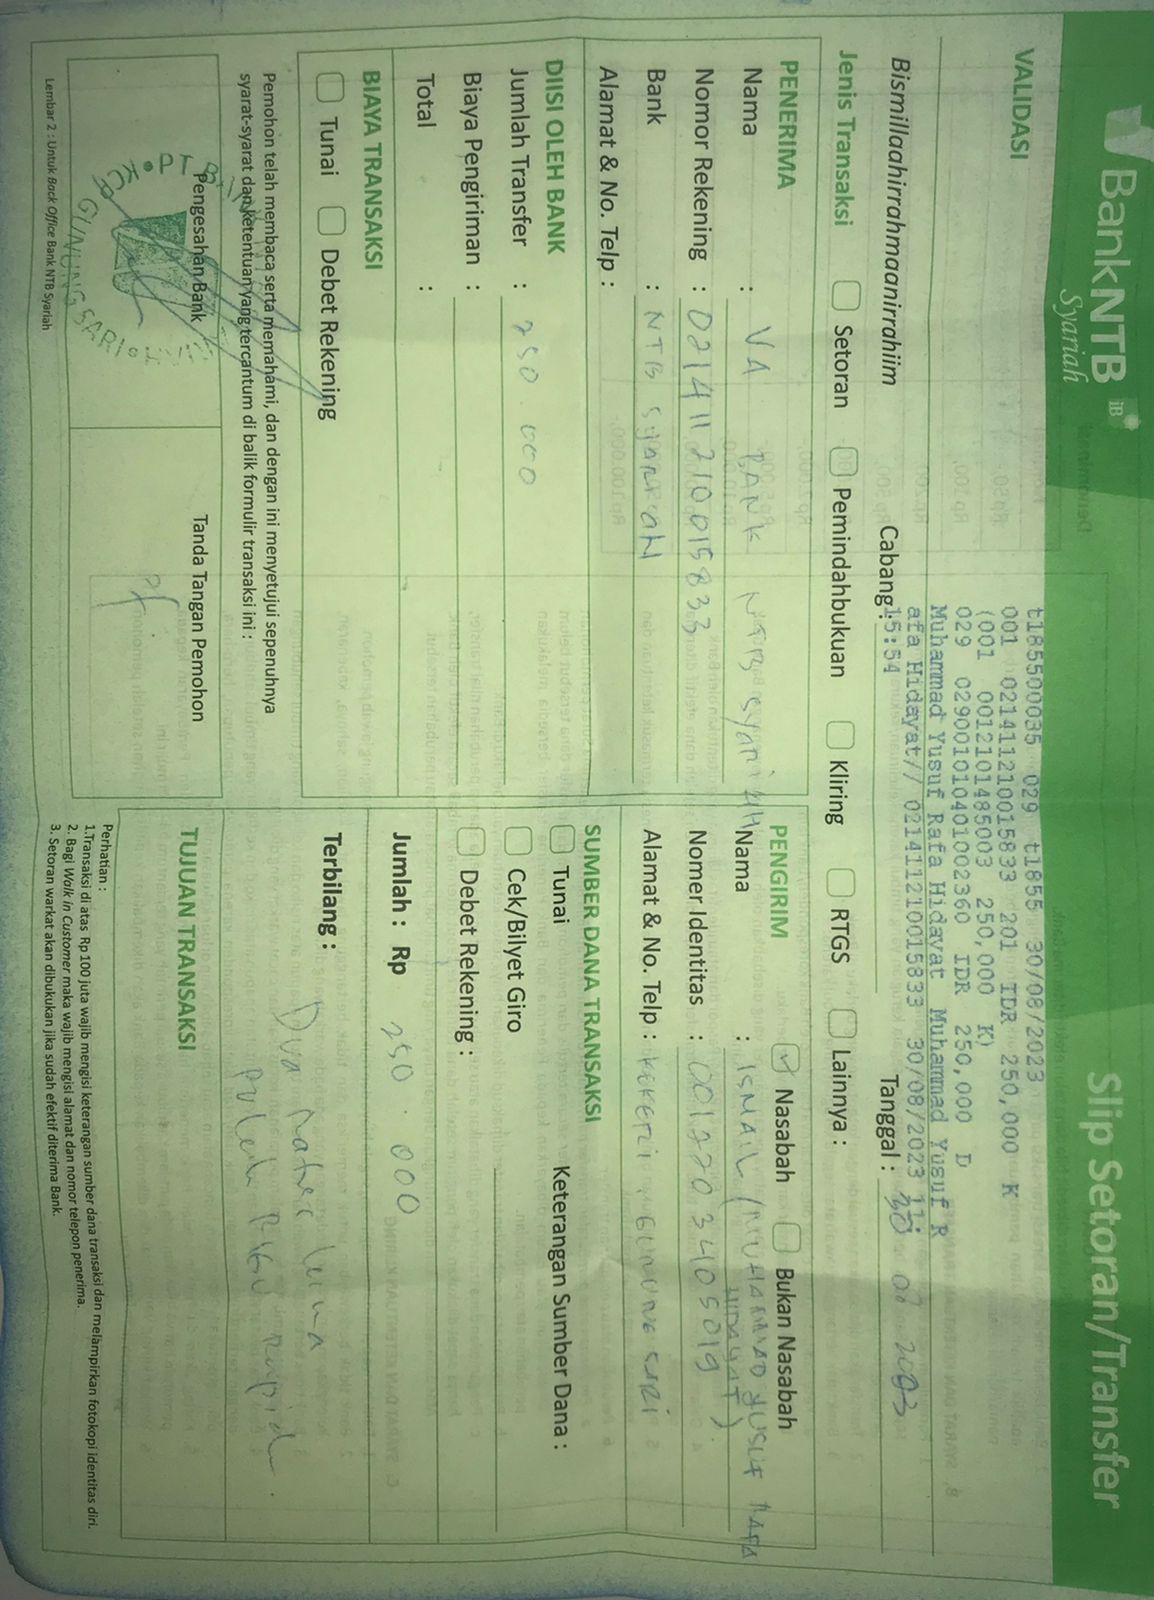 BankNTB iB
Syariah
Slip Setoran/Transfer
VALIDASI
t185500035 029 t1855 30/08/2023
001 021411210015833 201 IDR 250,000 K
(001 0012101485003 250,000 K)
029 029001010401002360 IDR 250,000 D
Muhammad Yusuf Rafa Hidayat Muhammad Yusuf R
afa Hidayat// 021411210015833 30/08/2023 11:
15:54
Bismillaahirrahmaanirrahiim Cabang : Tanggal : 30 08 2023
Jenis Transaksi Setoran Pemindahbukuan Kliring RTGS Lainnya :
PENERIMA
Nama : VA BANK NTB Syariah
Nomor Rekening : 021411210015833
Bank : NTB SYARIAH
Alamat & No. Telp :
PENGIRIM Nasabah Bukan Nasabah
Nama : ISMAIL (MUHAMMAD YUSUF RAFA
HIDAYAT)
Nomer Identitas : 0017703405019
Alamat & No. Telp : KEKERI, GUNUNG SARI
DIISI OLEH BANK
Jumlah Transfer : 250.000
Biaya Pengiriman :
Total :
SUMBER DANA TRANSAKSI
Tunai Keterangan Sumber Dana :
Cek/Bilyet Giro
Debet Rekening :
BIAYA TRANSAKSI
Tunai Debet Rekening
Jumlah : Rp 250.000
Terbilang : Dua ratus lima
puluh Ribu Rupiah.
Pemohon telah membaca serta memahami, dan dengan ini menyetujui sepenuhnya
syarat-syarat dan ketentuan yang tercantum di balik formulir transaksi ini :
Pengesahan Bank
GUNUNGSARI
Tanda Tangan Pemohon
TUJUAN TRANSAKSI
Perhatian :
1.Transaksi di atas Rp 100 juta wajib mengisi keterangan sumber dana transaksi dan melampirkan fotokopi identitas diri.
2. Bagi Walk in Customer maka wajib mengisi alamat dan nomor telepon penerima.
3. Setoran warkat akan dibukukan jika sudah efektif diterima Bank.
Lembar 2 : Untuk Back Office Bank NTB Syariah